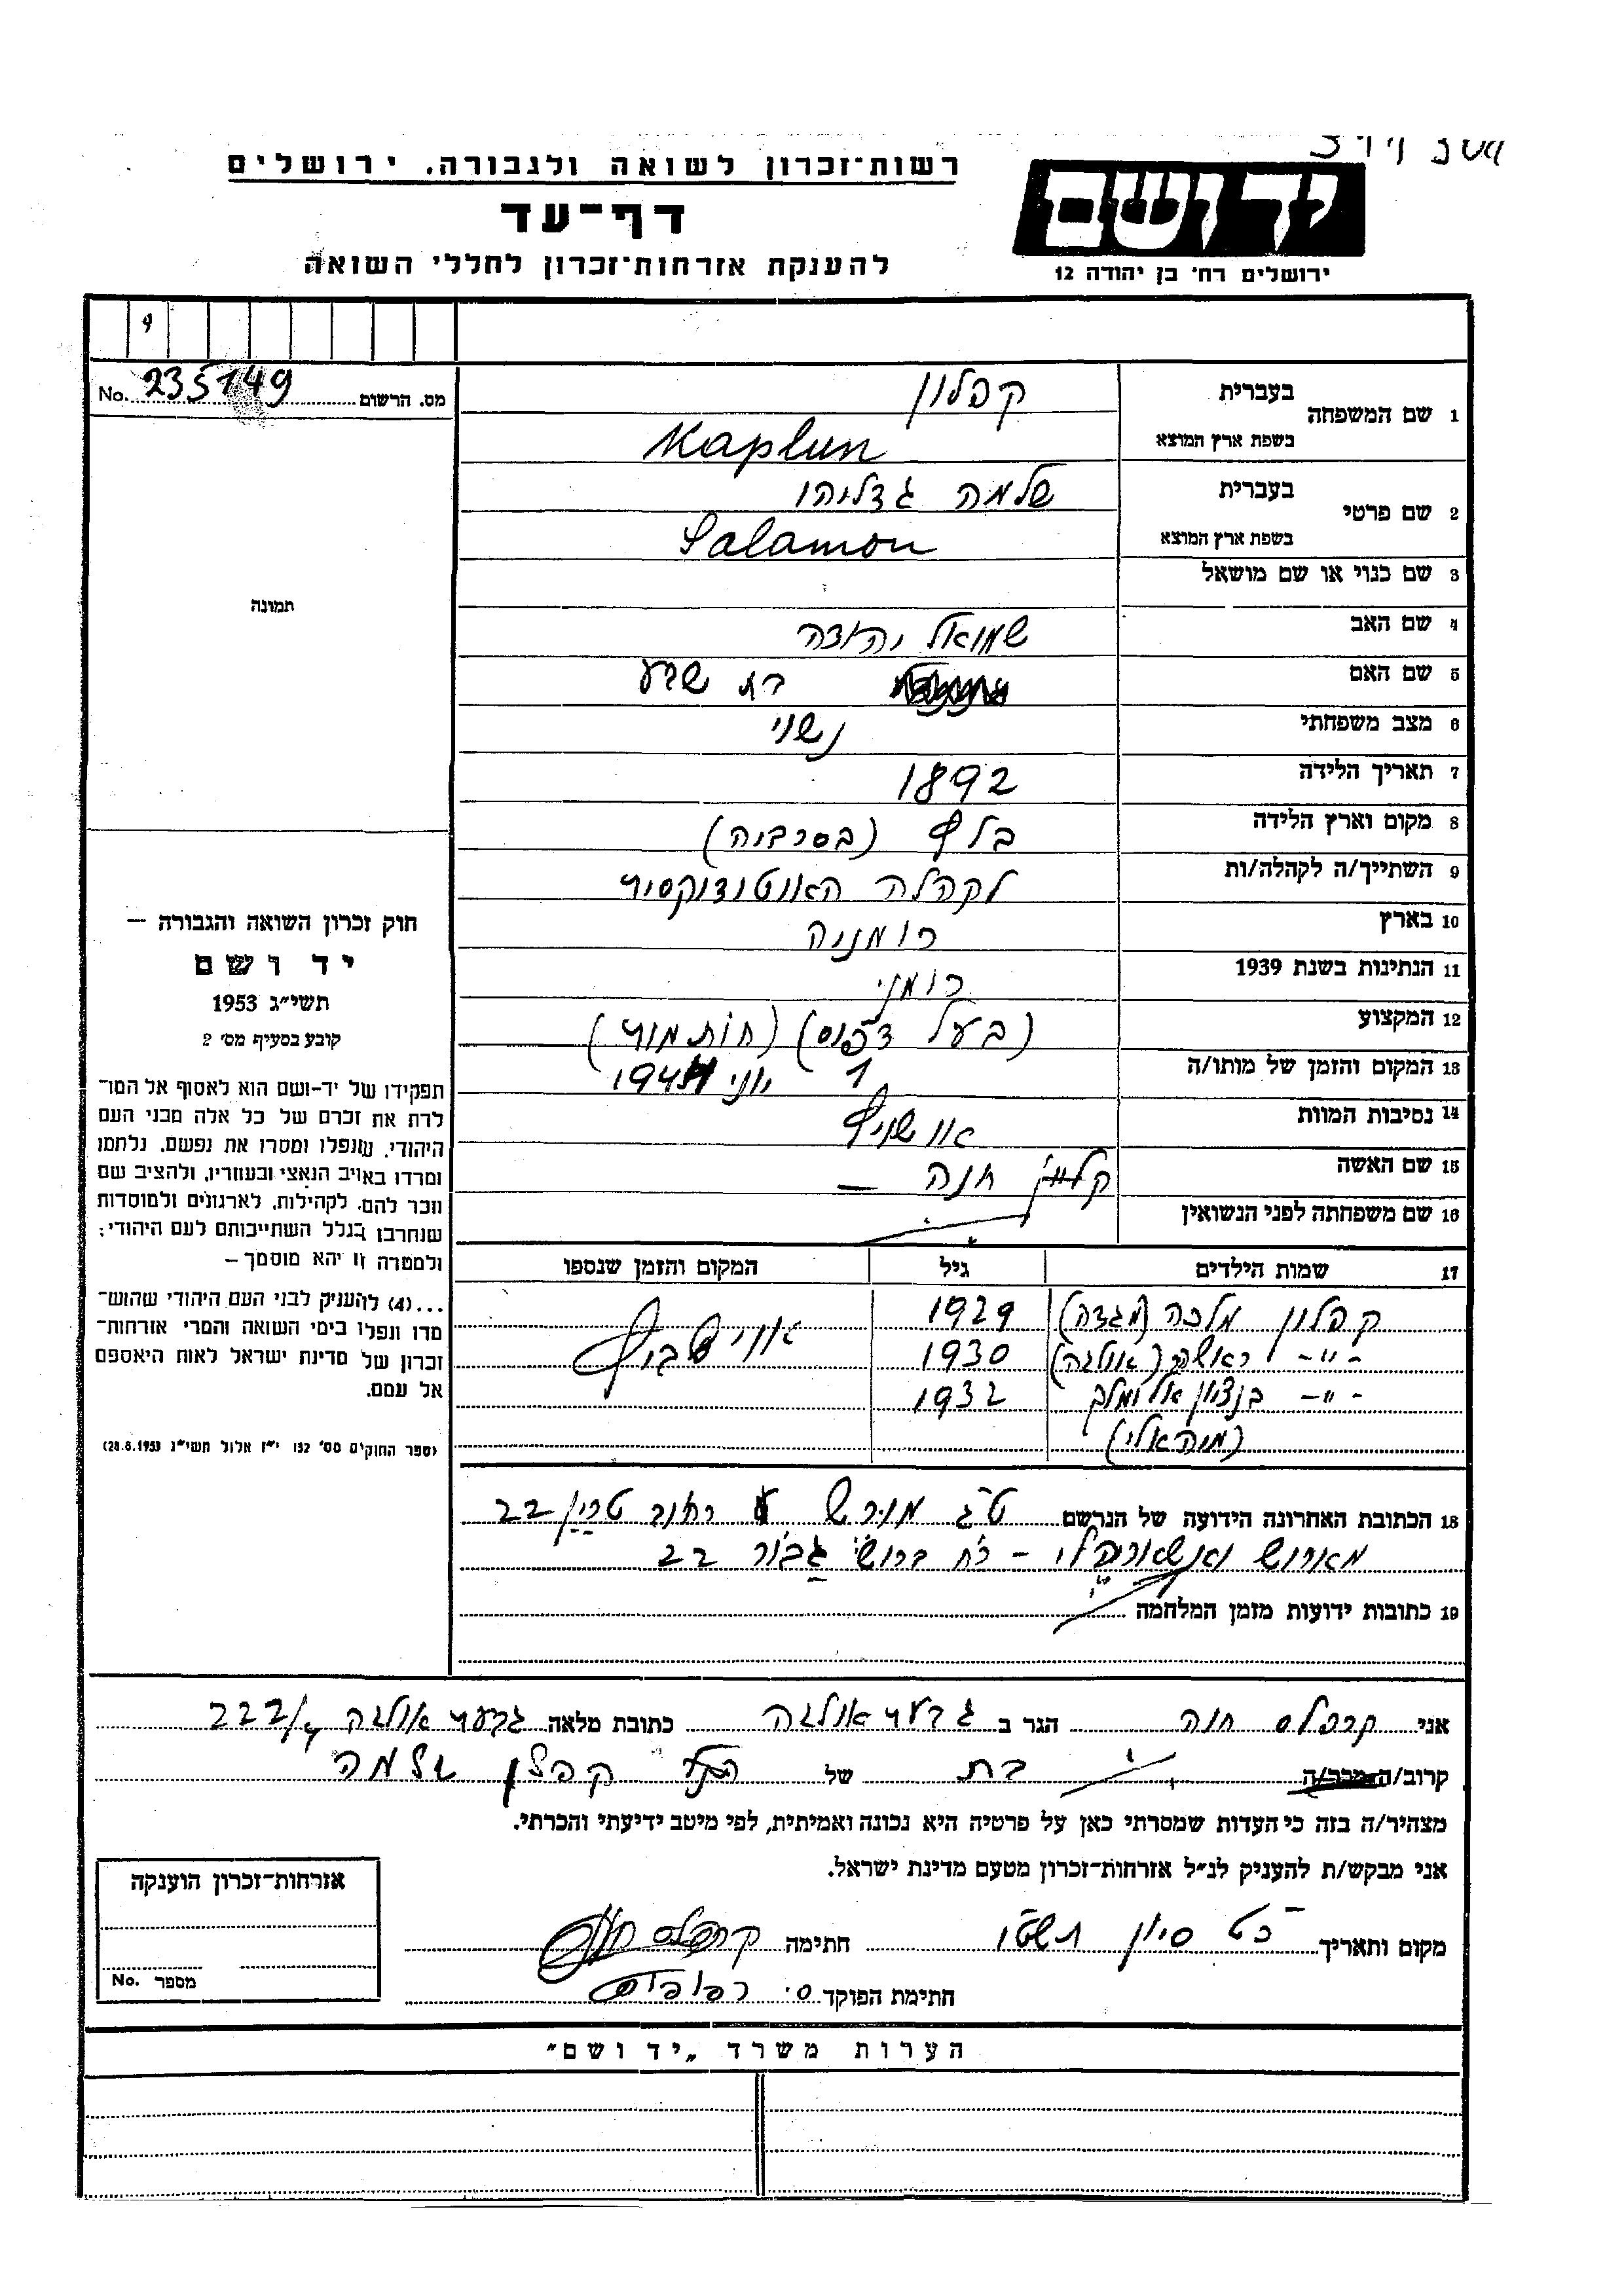 רשות־זכרון לשואה ולגבורה, ירושלים
דף־עד
להענקת אזרחות־זכרון לחללי השואה
יד ושם
ירושלים רח׳ בן יהודה 12
מס. הרשום 235149 No.
1 שם המשפחה
בעברית קפלון
בשפת ארץ המוצא Kaplun
2 שם פרטי
בעברית שלמה גדליהו
בשפת ארץ המוצא Salamon
3 שם כנוי או שם מושאל
4 שם האב שמואל יהודה
5 שם האם בת שבע
6 מצב משפחתי נשוי
7 תאריך הלידה 1892
8 מקום וארץ הלידה (בסרביה)
9 השתייך/ה לקהלה/ות לקהלה
10 בארץ רומניה
11 הנתינות בשנת 1939 רומני
12 המקצוע (בעל דפוס)
13 המקום והזמן של מותו/ה 1 יוני
14 נסיבות המוות אושויץ
15 שם האשה חנה –
16 שם משפחתה לפני הנשואין
17 שמות הילדים גיל המקום והזמן שנספו
קפלון מלכה (מגדה) 1929
– " – (אולגה) 1930
– " – בנציון 1932
18 הכתובת האחרונה הידועה של הנרשם רחוב 22
22
19 כתובות ידועות מזמן המלחמה
תמונה
חוק זכרון השואה והגבורה –
יד ושם
תשי״ג 1953
קובע בסעיף מס׳ 2
תפקידו של יד-ושם הוא לאסוף אל המו־
לדת את זכרם של כל אלה מבני העם
היהודי, שנפלו ומסרו את נפשם, נלחמו
ומרדו באויב הנאצי ובעוזריו, ולהציב שם
וזכר להם, לקהילות, לארגונים ולמוסדות
שנחרבו בגלל השתייכותם לעם היהודי;
ולמטרה זו יהא מוסמך –
...(4) להעניק לבני העם היהודי שהוש־
מדו ונפלו בימי השואה והמרי אזרחות־
זכרון של מדינת ישראל לאות היאספם
אל עמם.
(ספר החוקים מס׳ 132 י״ז אלול תשי״ג 28.8.1953)
אני קרפלס חנה הגר ב גבעת אולגה כתובת מלאה גבעת אולגה 222/
קרוב/ה מכר/ה בת של קפלון שלמה
מצהיר/ה בזה כי העדות שמסרתי כאן על פרטיה היא נכונה ואמיתית, לפי מיטב ידיעתי והכרתי.
אני מבקש/ת להעניק לנ״ל אזרחות־זכרון מטעם מדינת ישראל.
מקום ותאריך כט סיון תשטו חתימה קרפלס חנה
חתימת הפוקד
אזרחות־זכרון הוענקה
מספר No.
הערות משרד „יד ושם״